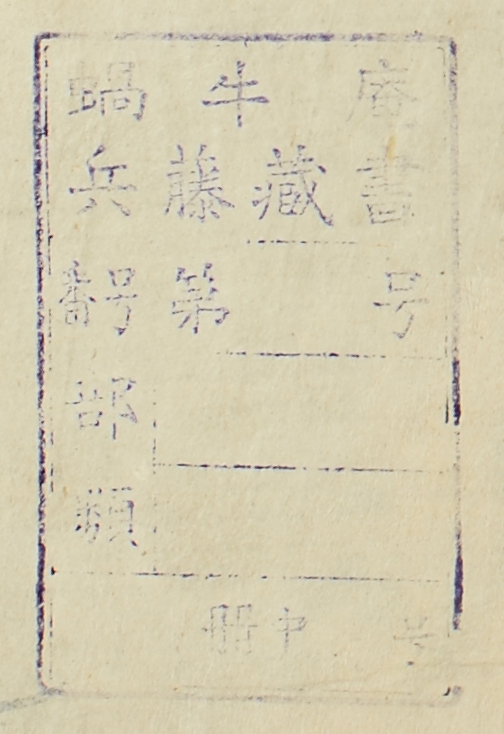 蝸牛庵
兵藤藏書
番号 第 号
部類
冊中 号